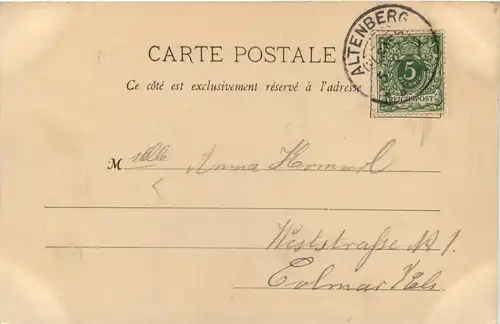 ALTENBERG
CARTE POSTALE
5
REICHSPOST
Ce côté est exclusivement réservé à l'adresse
Mselle Anna Hommel
Weststrasse N 1.
Colmar Els.